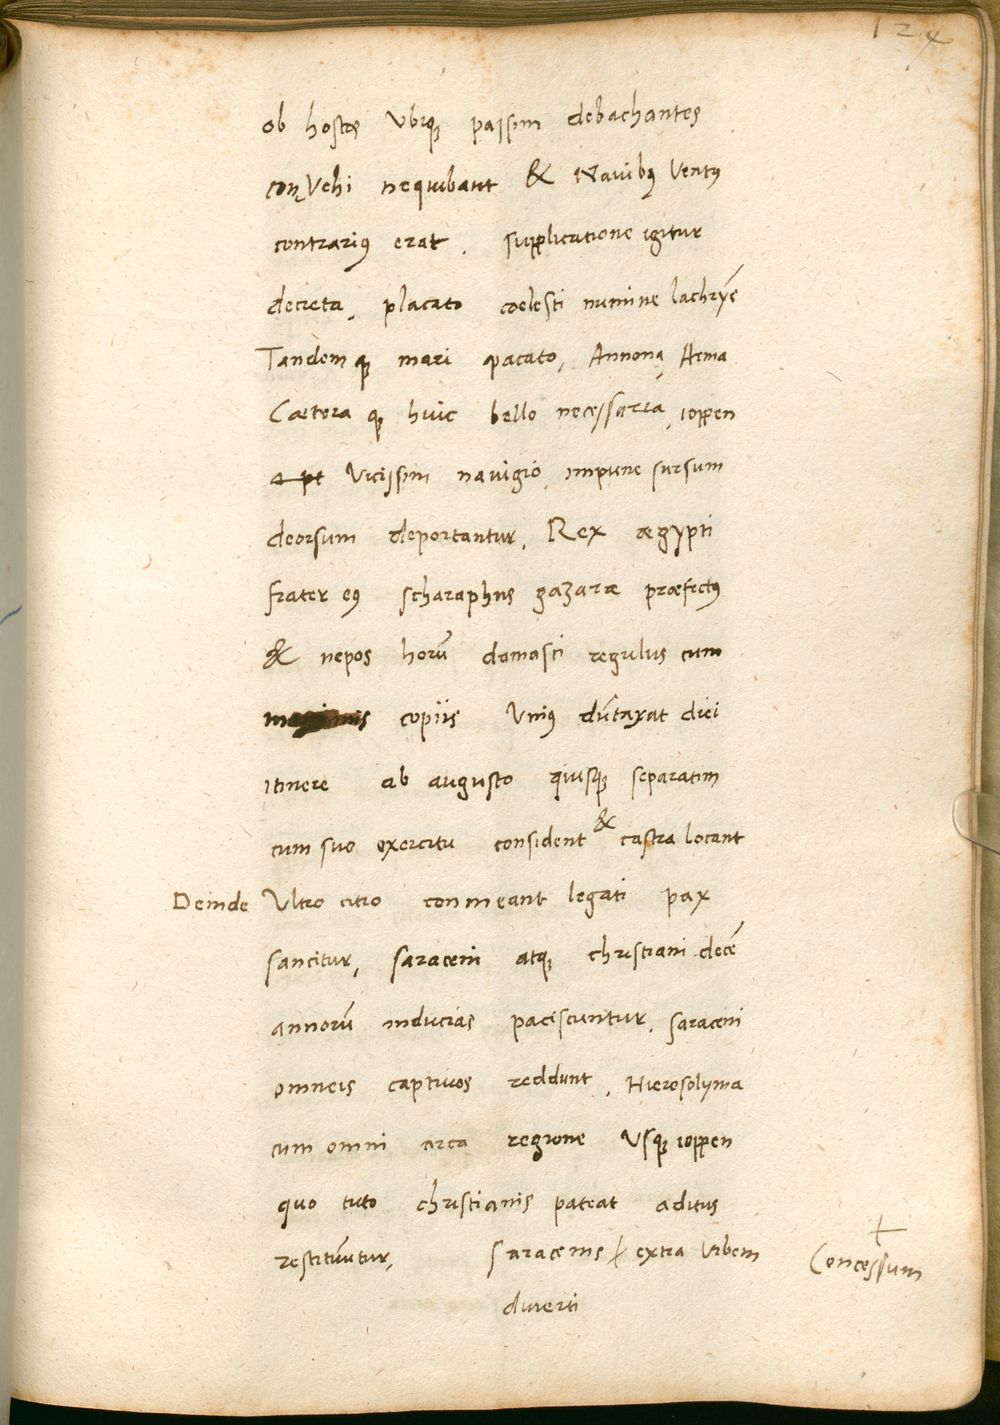 124
ob hostes Vbiq; passim debachantes
conVehi nequibant & Nauibꝰ Ventꝰ
contrariꝰ erat. supplicatione igitur
decreta, placato coelesti numine lachrȳe
Tandem q; mari pacato, Annona, Arma
Caetera q; huic bello necessaria, ioppen
Vicissim nauigio, impune sursum
deorsum deportantur. Rex ægypti
frater eꝰ scharaphus gazaræ præfectꝰ
& nepos horū damasti regulus cum
copiis Vniꝰ dūtaxat diei
itinere ab augusto quisq; separatim
cum suo exercitu consident & castra locant
Deinde Vltro citro conmeant legati pax
sancitur, saraceni atq; christiani decē
annorū inducias paciscuntur. saraceni
omneis captiuos reddunt. Hierosolyma
cum omni circa regione Vsq; ioppen
quo tuto christianis pateat aditus
restituūtur, saracenis + extra Vrbem + Concessum
diuerti